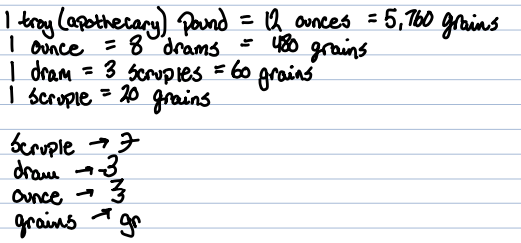 1 troy (apothecary) pound = 12 ounces = 5,760 grains
1 ounce = 8 drams = 480 grains
1 dram = 3 scruples = 60 grains
1 scruple = 20 grains
scruple → ℈
dram → ʒ
ounce → ℥
grains → gr